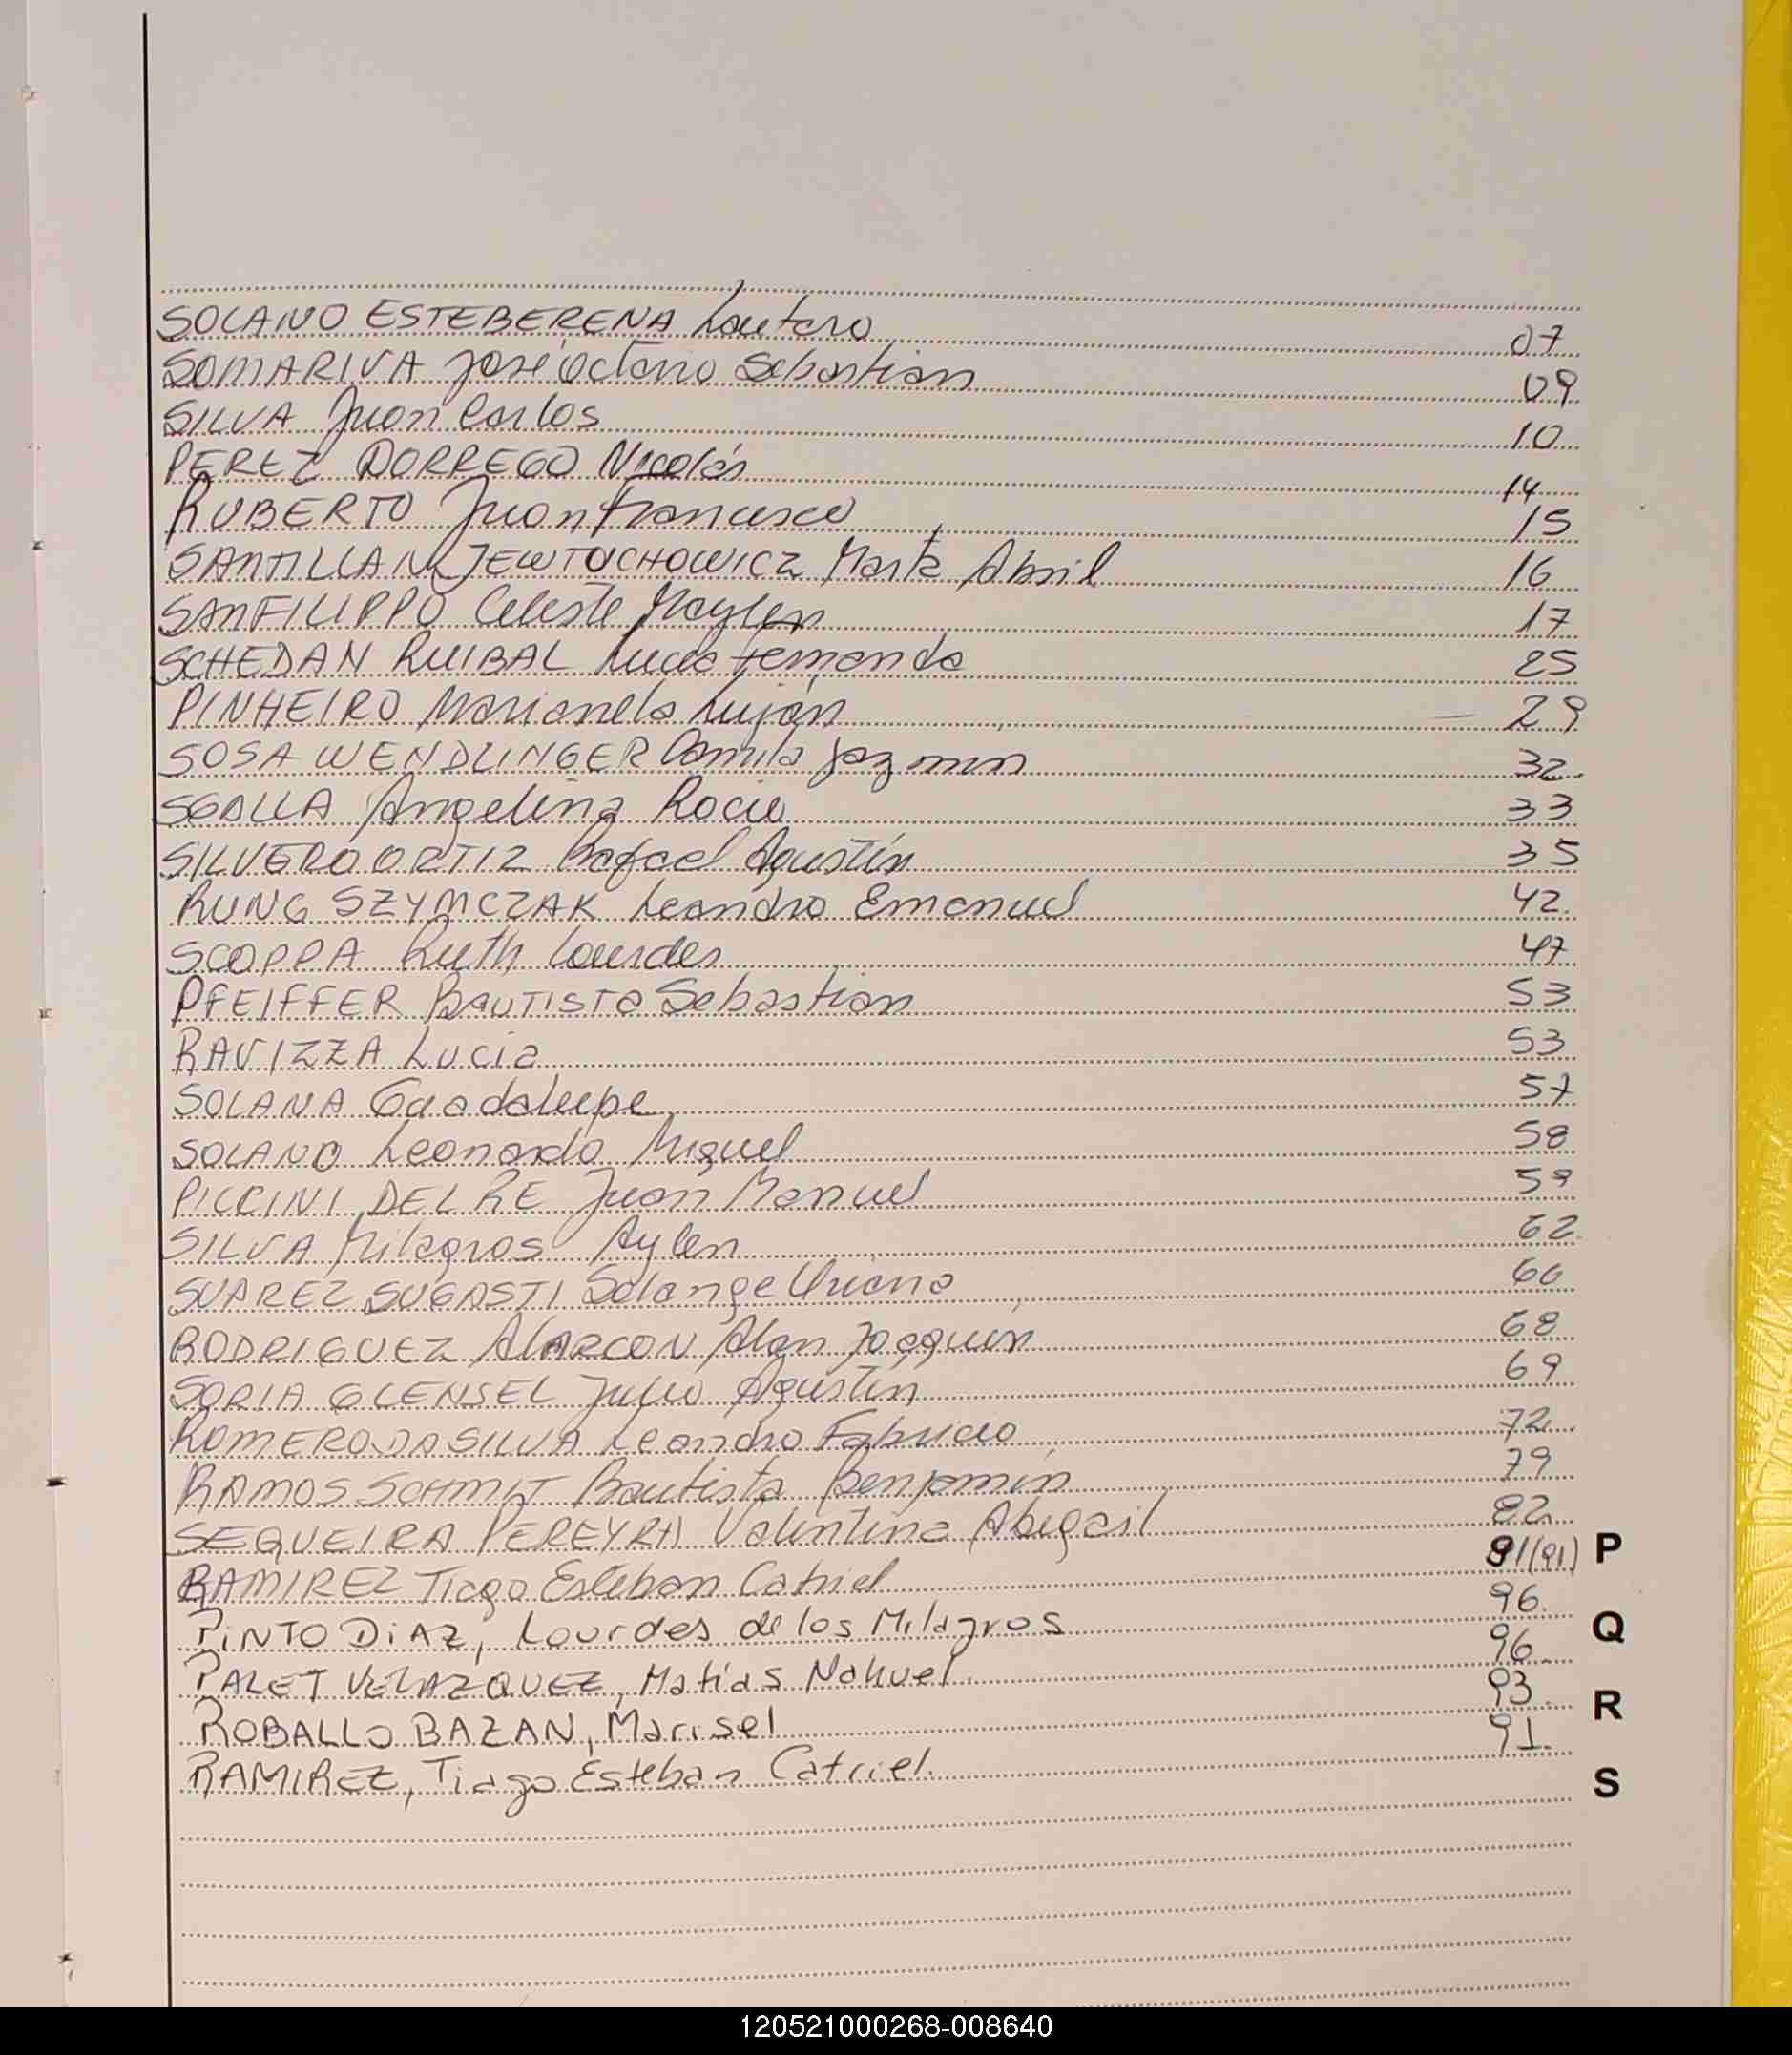 SOLANO ESTEBERENA Lautaro 07
SOMARIVA José Octavio Sebastian 09
SILVA Juan Carlos 10
PEREZ DORREGO Nicolás 14
RUBERTO Juan Francisco 15
SANTILLAN JEWTUCHOWICZ Marta Abril 16
SANFILIPPO Celeste Maylen 17
SCHEDAN RUIBAL Lucía Fernanda 25
PINHEIRO Marianela Luján 29
SOSA WENDLINGER Camila Jazmin 32
SGALLA Angelina Rocio 33
SILVERO ORTIZ Rafael Agustín 35
RUNG SZYMCZAK Leandro Emanuel 42
SCOPPA Ruth Lourdes 47
PFEIFFER BAUTISTA Sebastian 53
RAVIZZA Lucia 53
SOLANA Guadalupe 57
SOLANO Leonardo Miguel 58
PICCINI DEL RE Juan Manuel 59
SILVA Milagros Aylen 62
SUAREZ SUGASTI Solange Uriana 66
RODRIGUEZ ALARCON Alan Joaquin 68
SORIA GLENSEL Julio Agustín 69
ROMERO DA SILVA Leandro Fabricio 72
RAMOS SCHMIT Bautista Benjamín 79
SEQUEIRA PEREYRA Valentina Abigail 82
RAMIREZ Tiago Esteban Catriel 91(91)
PINTO DIAZ, Lourdes de los Milagros 96
PALET VELAZQUEZ, Matías Nahuel. 96
ROBALLO BAZAN, Marisel 93
RAMIREZ, Tiago Esteban Catriel. 91
P
Q
R
S
120521000268-008640